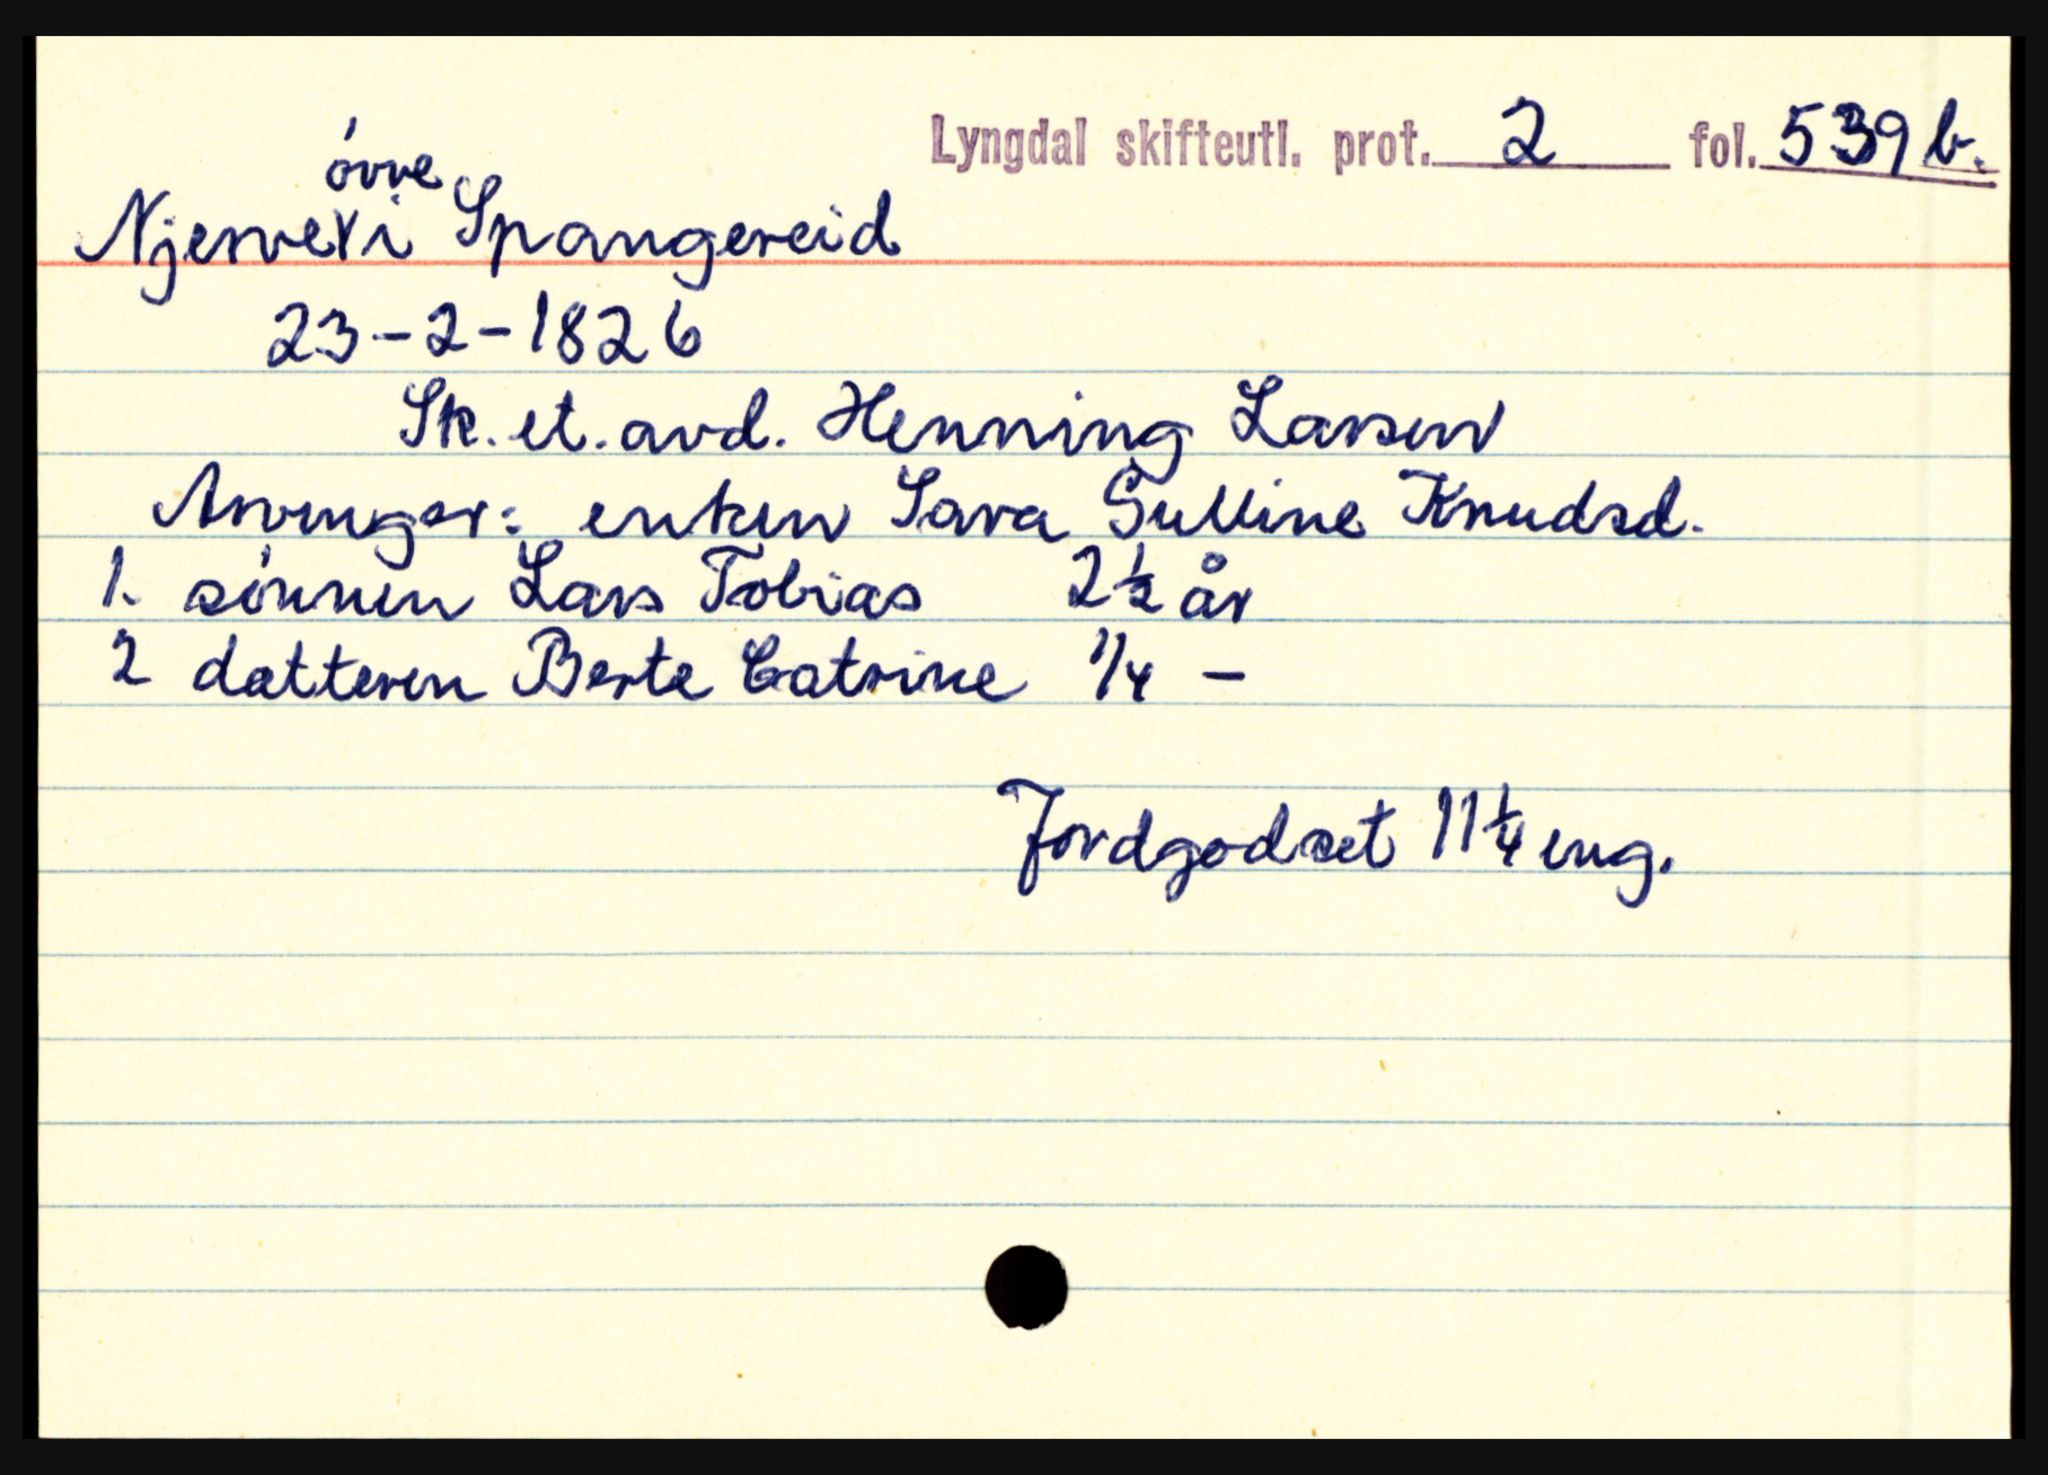 Lyngdal skifteutl. prot. 2 fol. 539 b.
øvre
Njerve i Spangereid
23-2-1826
Sk. et. avd. Henning Larsen
Arvinger: enken Sara Gulline Knudsd.
1. sønnen Lars Tobias 2½ år
2 datteren Berte Catrine 1/4 -
Jordgodset 11¼ eng.